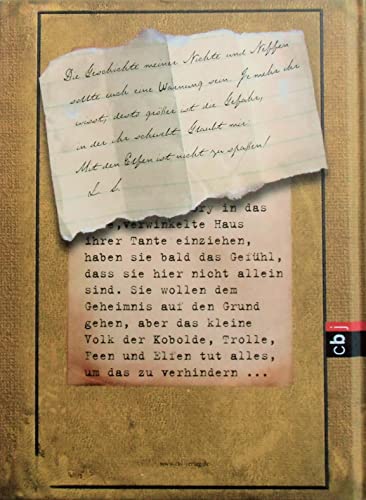 Die Geschichte meiner Nichte und Neffen
sollte euch eine Warnung sein. Je mehr ihr
wisst, desto größer ist die Gefahr,
in der ihr schwebt. Glaubt mir:
Mit den Elfen ist nicht zu spaßen!
L. S.
ory in das
, verwinkelte Haus
ihrer Tante einziehen,
haben sie bald das Gefühl,
dass sie hier nicht allein
sind. Sie wollen dem
Geheimnis auf den Grund
gehen, aber das kleine
Volk der Kobolde, Trolle,
Feen und Elfen tut alles,
um das zu verhindern ...
cbj
www.cbj-verlag.de